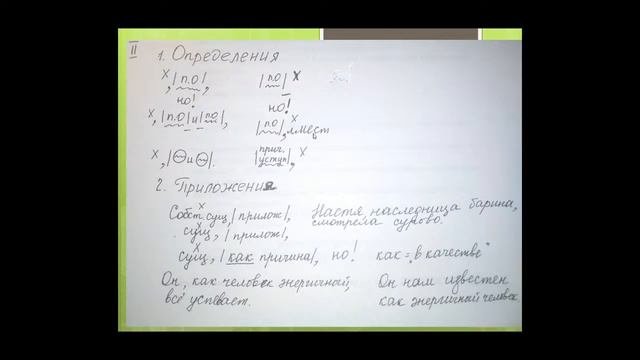 II
1. Определения
х, |п.о|, |п.о| х
но! но!
х, |п.о| и |п.о|, |п.о|, х л.мест
х, |~ и ~|. |прич. уступ|, х
2. Приложения
Собст. сущ, |прилож|, Настя, наследница барина,
смотрела сурово.
сущ, |прилож|,
сущ, |как причина|, но! как = "в качестве"
Он, как человек энергичный, Он нам известен
всё успевает. как энергичный человек.